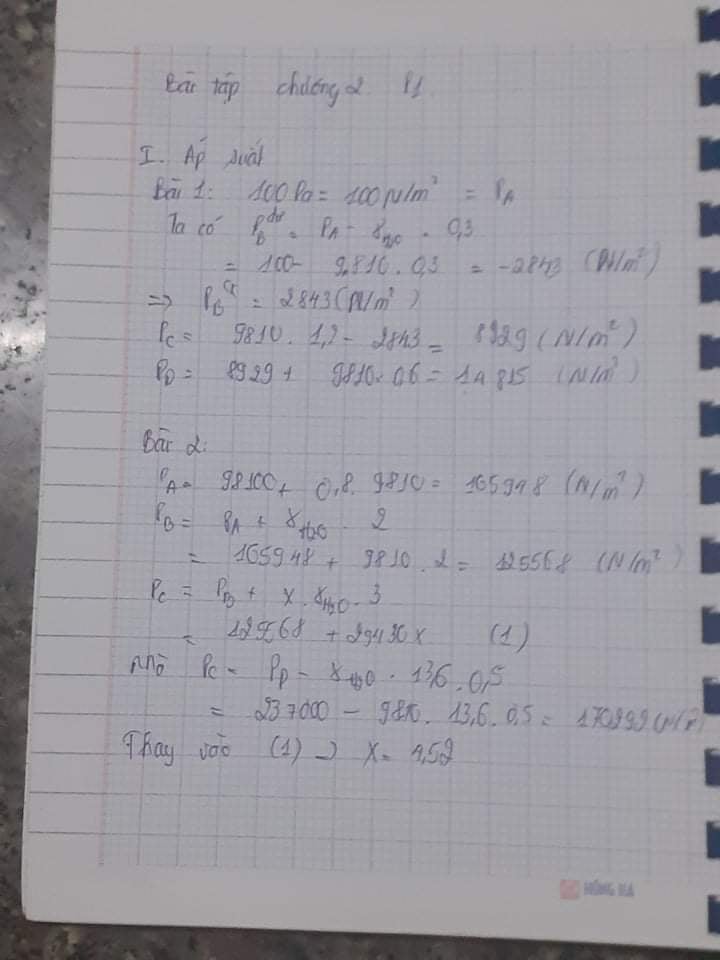 Bài tập chương 2 P1
I. Áp suất
Bài 1: 100 Pa = 100 N/m² = P_A
Ta có P_B^dư = P_A - γ_H2O . 0,3
= 100 - 9810 . 0,3 = -2843 (N/m²)
=> P_B^ck = 2843 (N/m²)
P_C = 9810 . 1,2 - 2843 = 8929 (N/m²)
P_D = 8929 + 9810 . 0,6 = 14 815 (N/m²)
Bài 2:
P_A = 98100 + 0,8 . 9810 = 105948 (N/m²)
P_B = P_A + γ_H2O . 2
= 105948 + 9810 . 2 = 125568 (N/m²)
P_C = P_B + x . γ_H2O . 3
= 125568 + 29430x (1)
Mà P_C = P_D - γ_H2O . 13,6 . 0,5
= 237000 - 9810 . 13,6 . 0,5 = 170292 (N/m²)
Thay vào (1) → x = 1,52
HỒNG HÀ